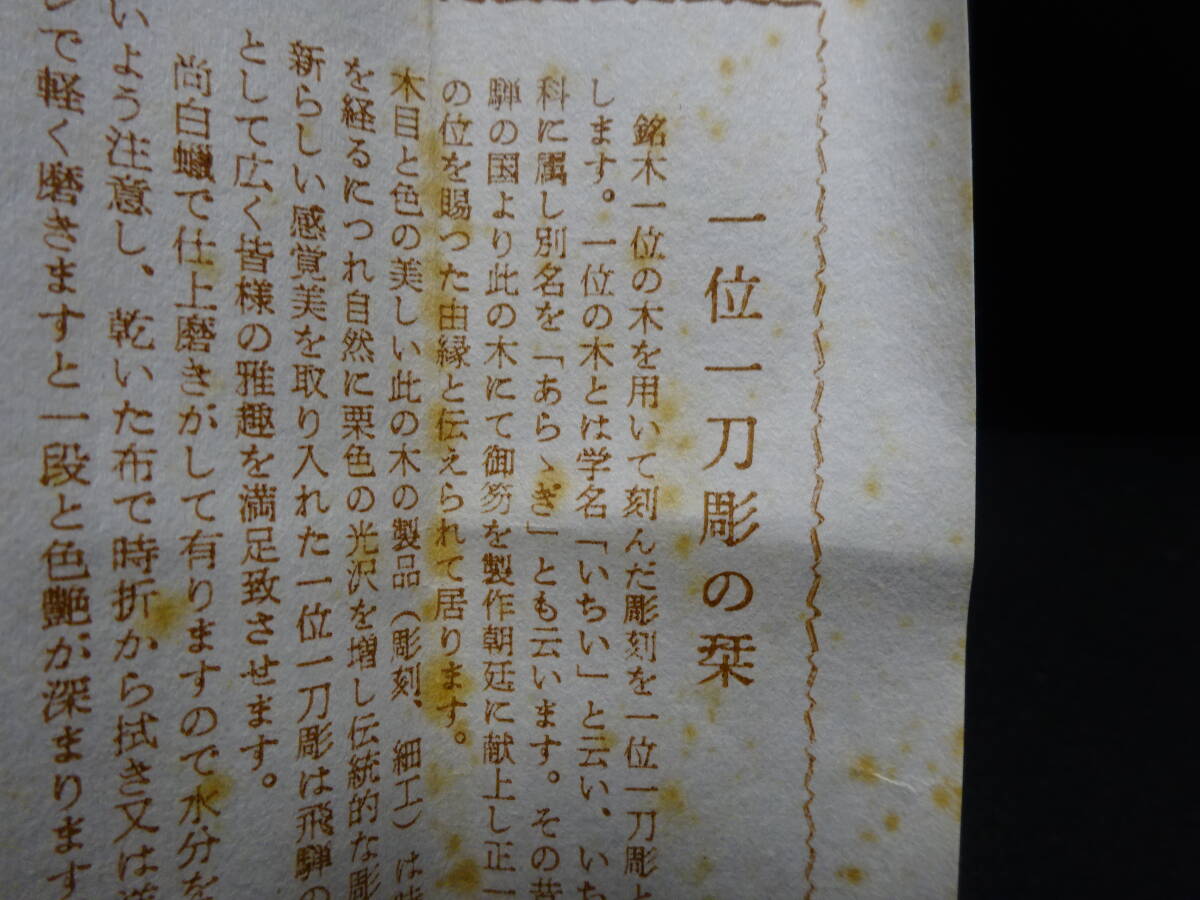 一位一刀彫の栞
銘木一位の木を用いて刻んだ彫刻を一位一刀彫と
します。一位の木とは学名「いちい」と云い、いち
科に属し別名を「あらゝぎ」とも云います。その昔
騨の国より此の木にて御笏を製作朝廷に献上し正一
の位を賜つた由縁と伝えられて居ります。
木目と色の美しい此の木の製品（彫刻、細工）は時
を経るにつれ自然に栗色の光沢を増し伝統的な彫
新らしい感覚美を取り入れた一位一刀彫は飛騨の
として広く皆様の雅趣を満足致させます。
尚白蠟で仕上磨きがして有りますので水分を
いよう注意し、乾いた布で時折から拭き又は
で軽く磨きますと一段と色艶が深まります